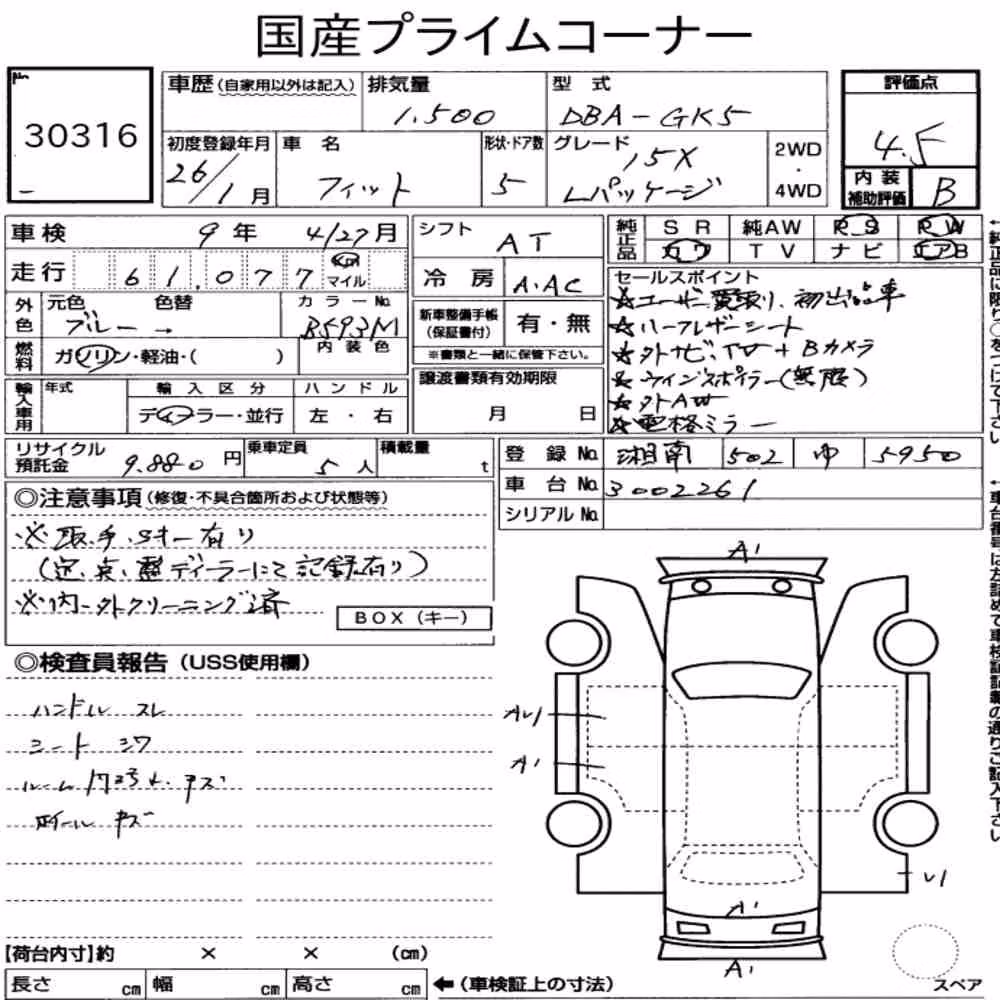 国産プライムコーナー
No.
30316
車歴(自家用以外は記入) 排気量 型式
1.500 DBA-GK5
初度登録年月 車名 形状・ドア数 グレード 2WD・4WD
26/1月 フィット 5 15X Lパッケージ
評価点
4.5
内装補助評価 B
車検 9年 4/27月
走行 61,077 km マイル
外色 元色 色替 カラーNo.
ブルー → B593M
内装色
燃料 ガソリン・軽油・( )
輸入車用 年式 輸入区分 ハンドル
ディーラー・並行 左・右
シフト AT
冷房 A.AC
新車整備手帳(保証書付) 有・無
※書類と一緒に保管下さい。
譲渡書類有効期限
月 日
純正品 SR 純AW PS PW
カワ TV ナビ エアB
セールスポイント
☆ユーザー買取り、初出品車
☆ハーフレザーシート
☆外ナビ、TV+Bカメラ
☆ウイングスポイラー(無限)
☆外AW
☆電格ミラー
←純正品に限り○をつけて下さい
リサイクル預託金 9.880円 乗車定員 5人 積載量 t
登録No. 湘南 502 ゆ 5950
車台No. 3002261
シリアルNo.
←車台番号は左詰めで車検証記載の通りご記入下さい
◎注意事項(修復・不具合箇所および状態等)
※取、手、Sキー有り
(定、点、整ディーラーにて記録有り)
※内・外クリーニング済
BOX(キー)
◎検査員報告(USS使用欄)
ハンドル スレ
シート シワ
ルーム 内張り、キズ
ホイール キズ
A1
AU1
A1
U1
A1
A1
スペア
【荷台内寸】約 × × (cm)
長さ cm 幅 cm 高さ cm ←(車検証上の寸法)